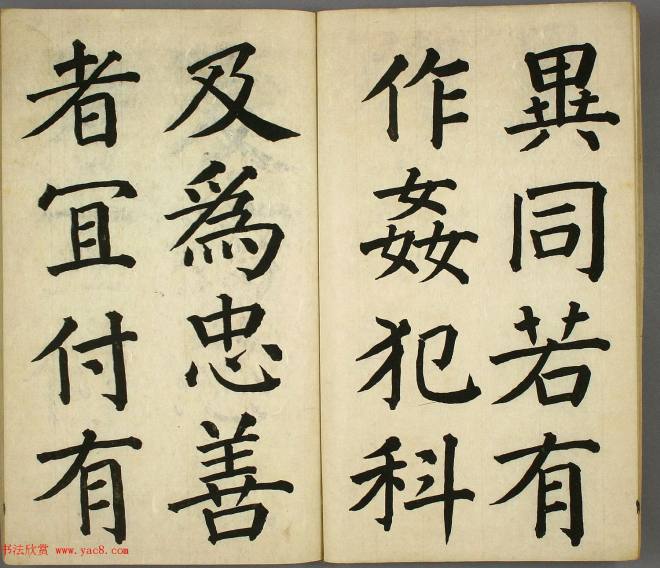 異同若有
作姦犯科
及爲忠善
者宜付有
书法欣赏 www.yac8.com